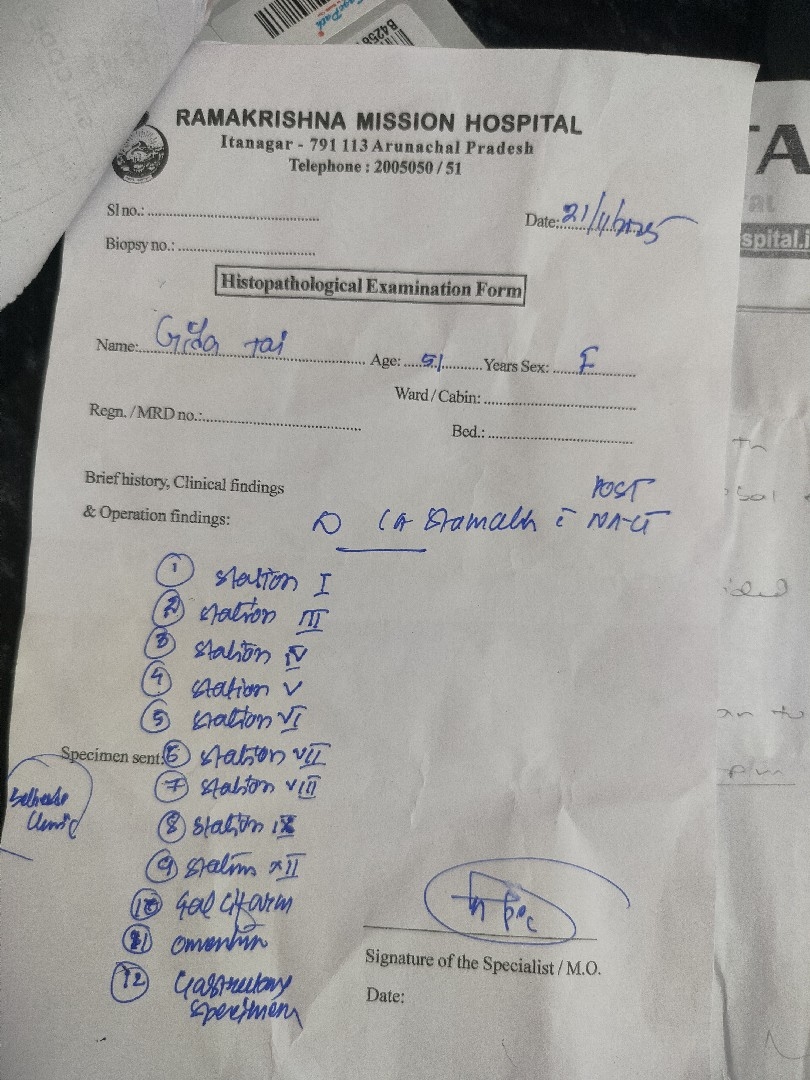 B425
RAMAKRISHNA MISSION HOSPITAL
Itanagar - 791 113 Arunachal Pradesh
Telephone : 2005050 / 51
Sl no.:
Date: 21/11/2025
Biopsy no.:
Histopathological Examination Form
Name: Gida Tai Age: 51 Years Sex: F
Ward / Cabin:
Regn. / MRD no.:
Bed.:
Brief history, Clinical findings
& Operation findings:
POST
Ca Stomach c̄ NACT
1 Station I
2 Station III
3 Station IV
4 Station V
5 Station VI
Specimen sent: 6 Station VII
7 Station VIII
8 Station IX
9 Station XII
10
11 Omentum
12 Gastrectomy
specimen
Clinic
Signature of the Specialist / M.O.
Date:
TA
spital.i